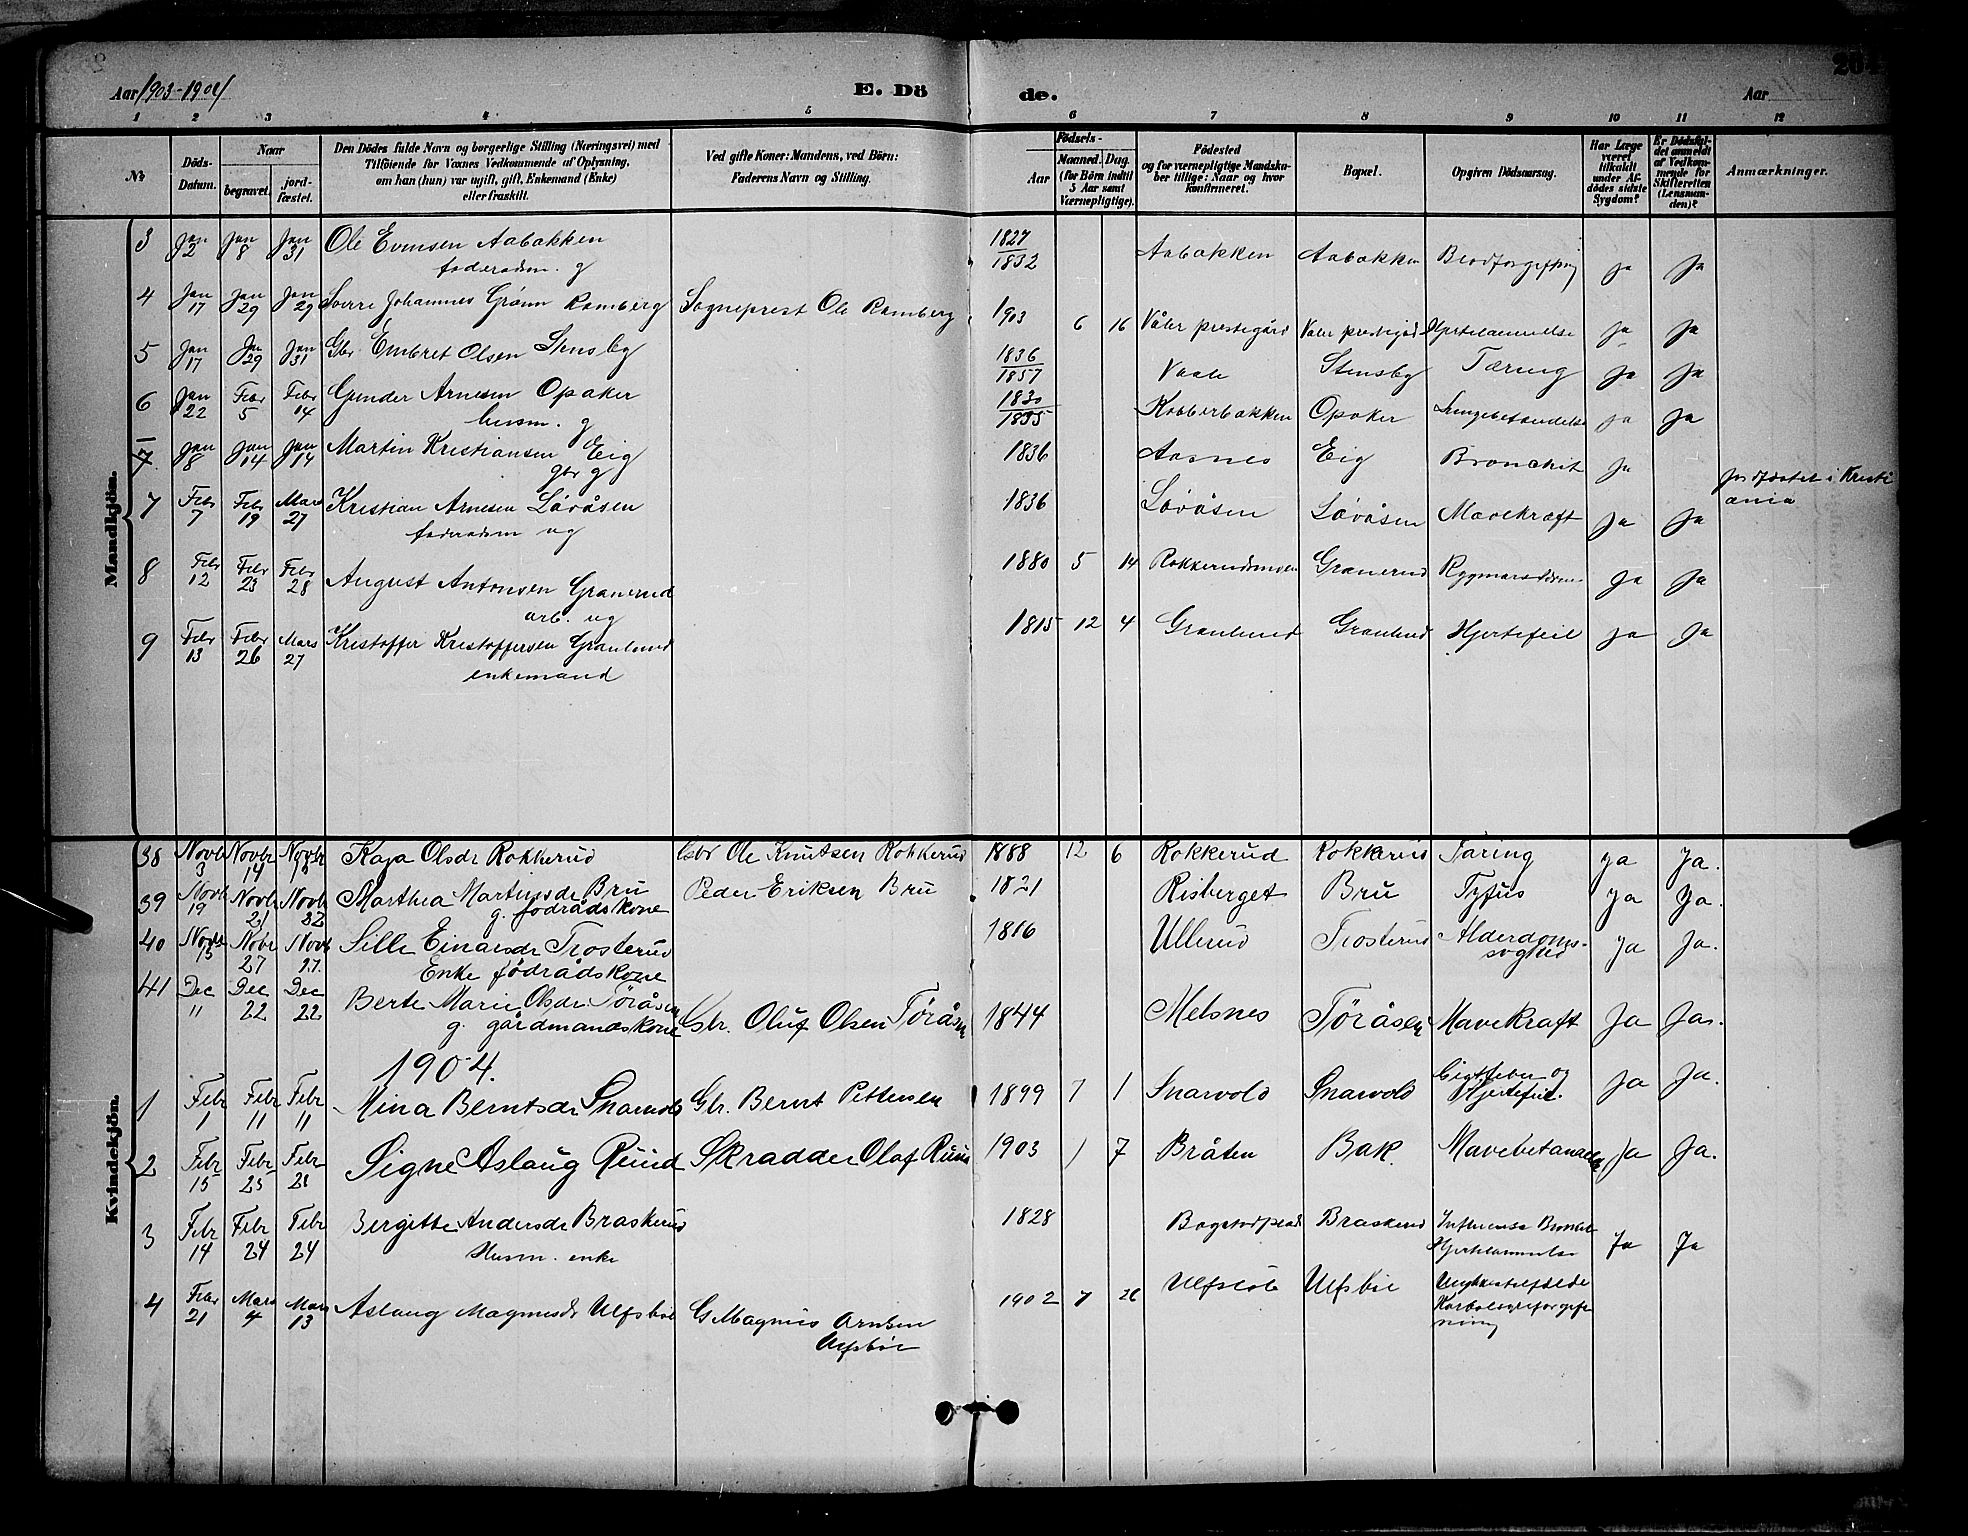 Aar 1903-1904 E. Dö de. Aar 204
1 2 3 4 5 6 7 8 9 10 11 12
No Döds-Datum. Naar begravet. jordfæstet. Den Dödes fulde Navn og borgerlige Stilling (Næringsvei) med Tilföiende for Voxnes Vedkommende af Oplysning, om han (hun) var ugift, gift, Enkemand (Enke) eller fraskilt. Ved gifte Koner: Mandens, ved Börn: Faderens Navn og Stilling. Födsels- Aar Maaned. Dag. (for Börn indtil 5 Aar samt Værnepligtige). Födested og for værnepligtige Mandskaber tillige: Naar og hvor konfirmeret. Bopæl. Opgiven Dödsaarsag. Har Læge været tilkaldt under Afdödes sidste Sygdom? Er Dödsfaldet anmeldt af Vedkommende for Skifteretten (Lensmanden)? Anmærkninger.
Mandkjön.
3 Jan 2 Jan 8 Jan 31 Ole Evensen Aabakken 1827/1832 Aabakken Aabakken Blodforgiftning ja Ja
foderaadsm. g
4 Jan 17 Jan 29 Jan 29 Sverre Johannes Grönn Ramberg Sogneprest Ole Ramberg 1903 6 16 Våler prestegård Våler prestegård Hjertelammelse ja Ja
5 Jan 17 Jan 29 Jan 31 Gbr Embret Olsen Stensby 1836/1857 Vaale Stensby Tæring ja Ja
6 Jan 22 Febr 5 Febr 14 Gunder Arnesen Opaker 1830/1835 Kobberbakken Opaker Lungebetændelse ja Ja
husm. g
1 7 Jan 8 Jan 14 Jan 14 Martin Kristiansen Eig 1836 Aasnes Eig Bronchit ja jordfæstet i Kristi
gbr g ania
7 Febr 7 Febr 19 Mars 27 Kristian Arnesen Lövåsen 1836 Lövåsen Lövåsen Mavekræft ja Ja
foderaadsm ug
8 Febr 12 Febr 23 Febr 28 August Antonsen Granerud 1880 5 14 Rokkerudmoen Granerud ja Ja
arb. ug
9 Febr 13 Febr 26 Mars 27 Kristoffer Kristoffersen Granlund 1815 12 4 Granlund Granlund Hjertefeil ja Ja
enkemand
Kvindekjön.
38 Novbr 3 Novbr 14 Novbr Kaja Olsdr Rokkerud Gbr Ole Knutsen Rokkerud 1888 12 6 Rokkerud Rokkerud Tæring ja Ja.
39 Novbr 19 Novbr 21 Novbr 22 Marthea Martinsdr Bru Peder Eriksen Bru 1821 Risberget Bru Tyfus ja Ja.
g. födrådskone
40 Novbr 15 Nobr 27 Novbr 27. Sille Einarsdr Trosterud 1816 Ullerud Trosterud Alderdoms-
Enke födrådskone svaghed ja Ja.
41 Dec 11 Dec 22 Dec 22 Berte Marie Olsdr Töråsen
g. gårdmandskone Gbr. Oluf Olsen Töråsen 1844 Melsnes Töråsen Mavekræft Ja Ja.
1904.
1 Febr 1 Febr 11 Febr 11 Mina Berntsdr Snarvold Gbr. Bernt Pettersen 1899 7 1 Snarvold Snarvold Gigtfeber og
Hjertefeil. Ja Ja.
2 Febr 15 Febr 25 Febr Signe Aslaug Ruud Skrædder Olaf Ruud 1903 1 7 Bråten Bak. Mavebetændelse Ja Ja.
3 Febr 14 Febr 24 Febr 24 Bergitte Andersdr Braskerud 1828 Braskerud Influensa
Husm. enke Hjertelammelse Ja Ja
4 Febr 21 Mars 4 Mars 13 Aslaug Magnusdr Ulfsböl G Magnus Arnesen 1902 7 26 Ulfsböl Ulfsböl Ulykkestilfælde
Ulfsböl Karbolsyreforgift
ning